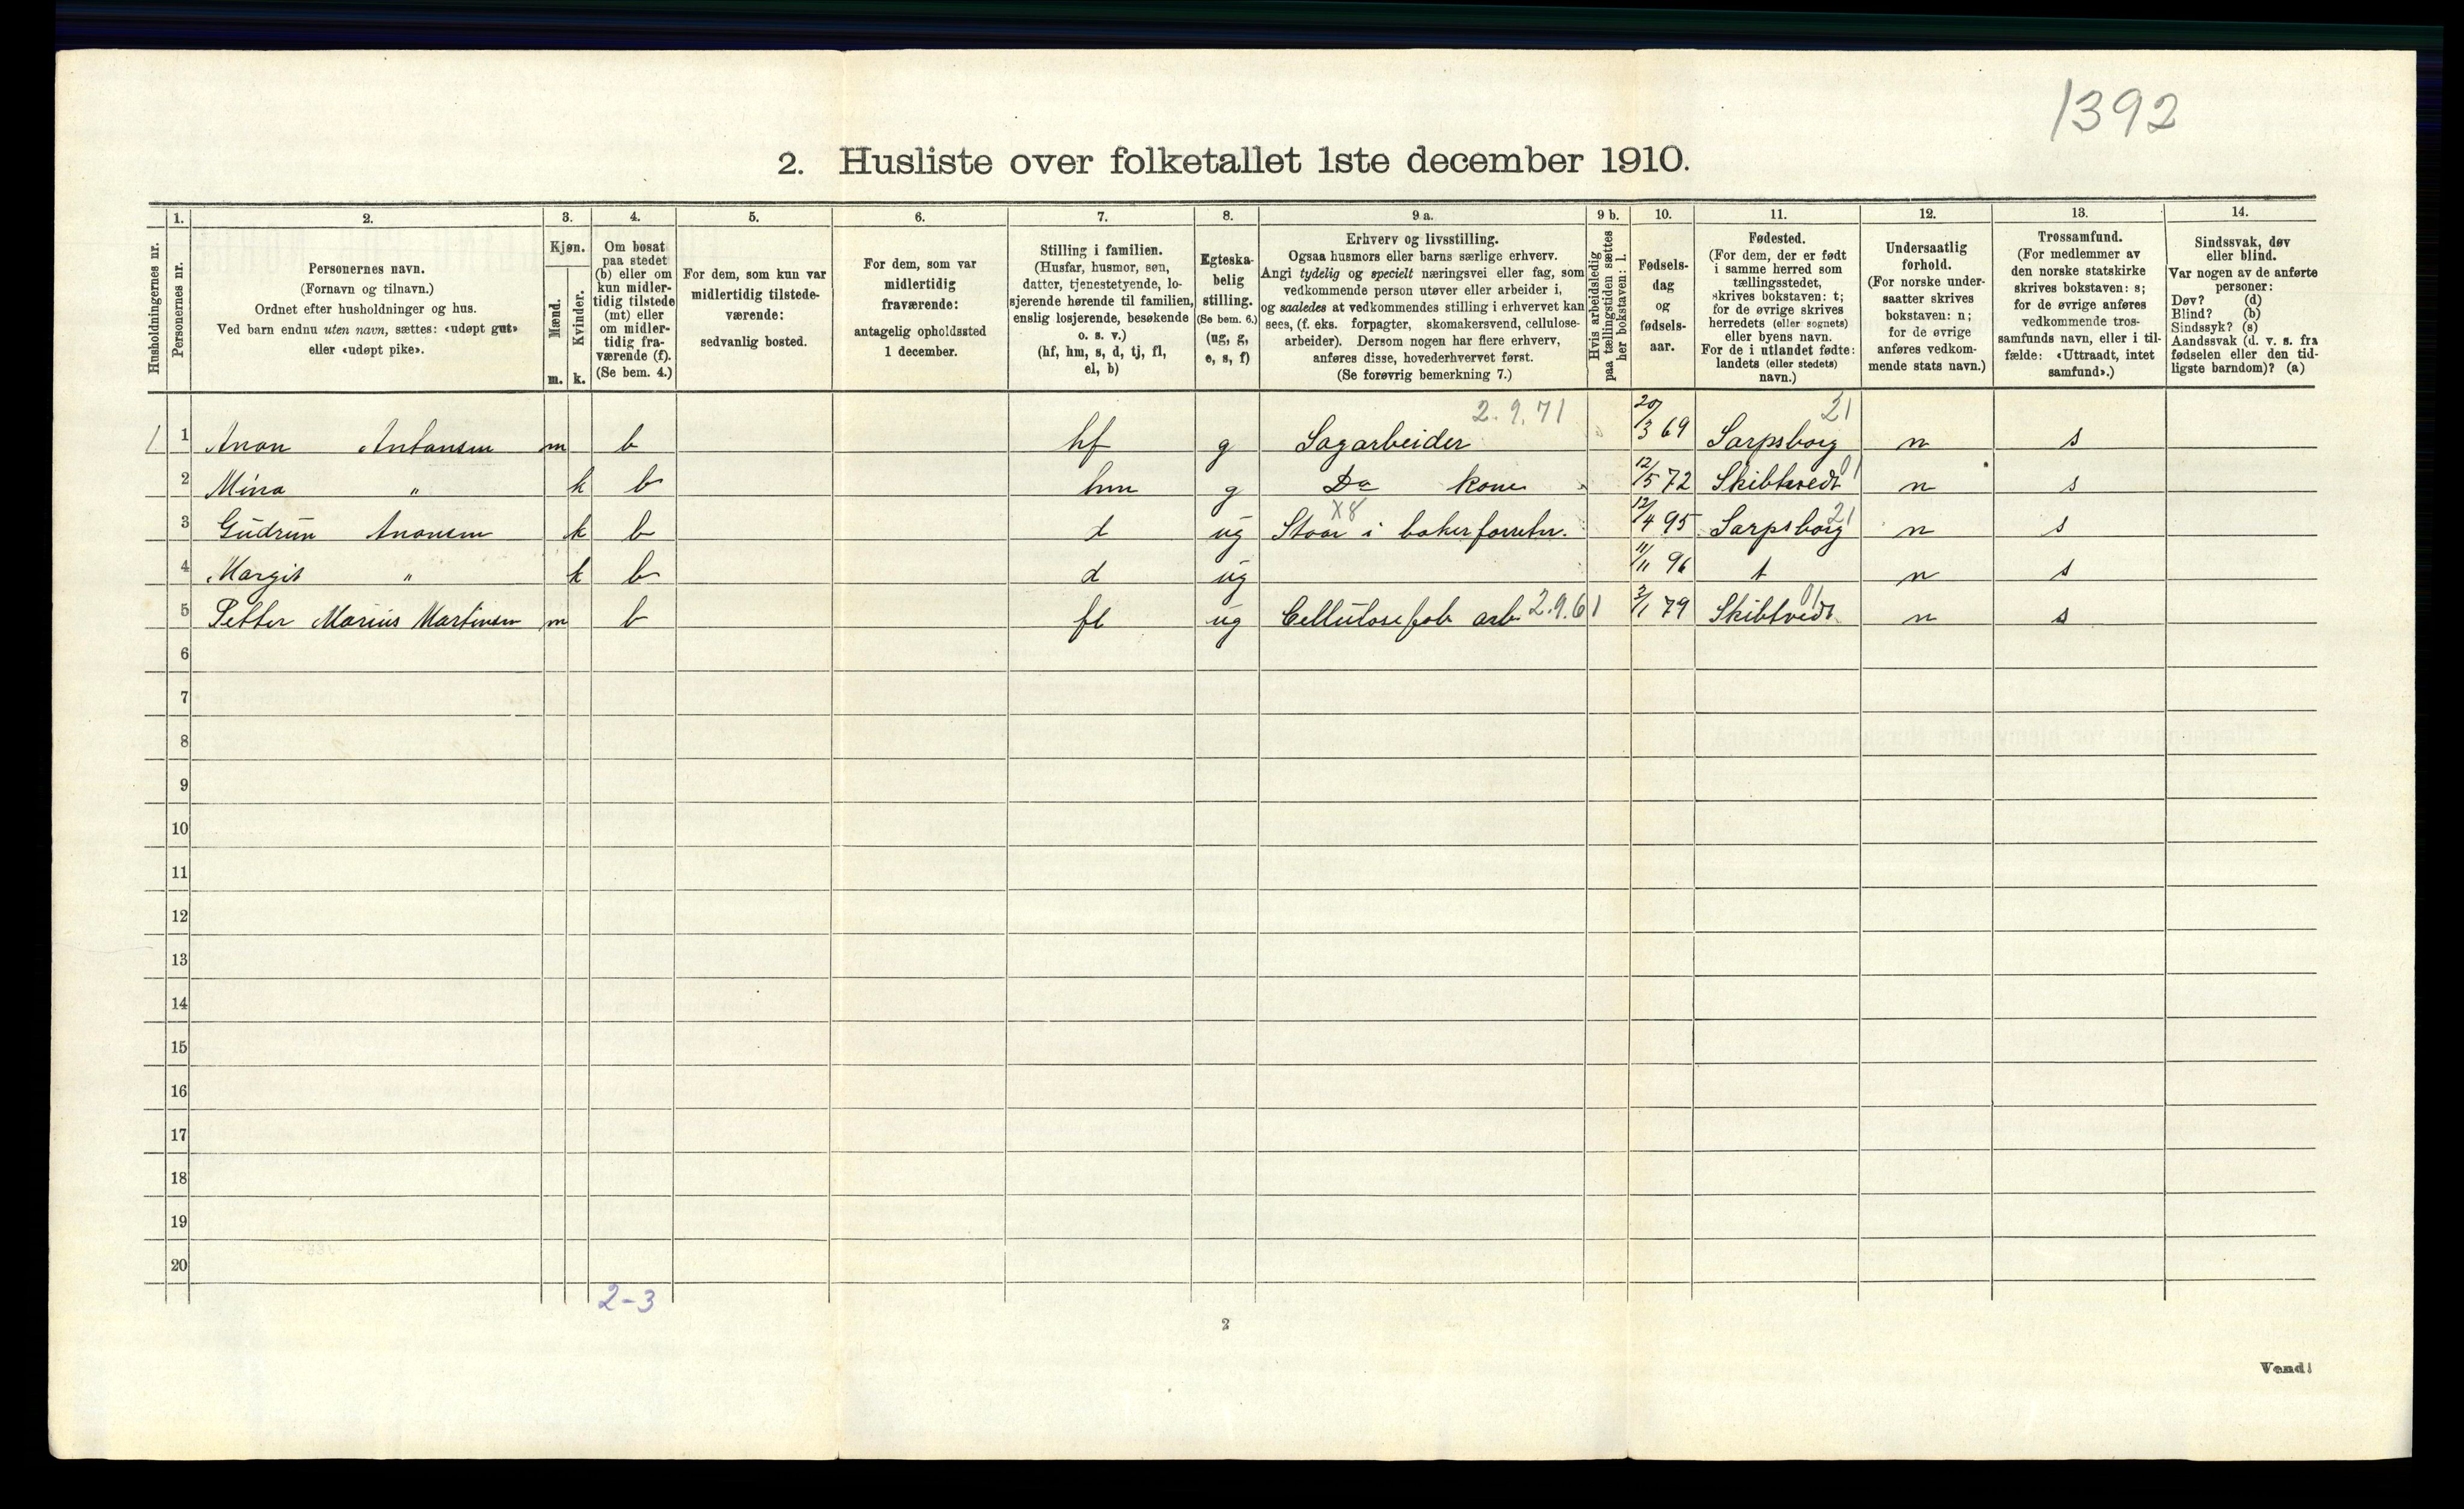 1392
2. Husliste over folketallet 1ste december 1910.
Husholdningernes nr.
1.
Personernes nr.
2.
Personernes navn.
(Fornavn og tilnavn.)
Ordnet efter husholdninger og hus.
Ved barn endnu uten navn, sættes: «udøpt gut»
eller «udøpt pike».
3.
Kjøn.
Mænd.
m.
Kvinder.
k.
4.
Om bosat
paa stedet
(b) eller om
kun midler-
tidig tilstede
(mt) eller
om midler-
tidig fra-
værende (f).
(Se bem. 4.)
5.
For dem, som kun var
midlertidig tilstede-
værende:
sedvanlig bosted.
6.
For dem, som var
midlertidig
fraværende:
antagelig opholdssted
1 december.
7.
Stilling i familien.
(Husfar, husmor, søn,
datter, tjenestetyende, lo-
sjerende hørende til familien,
enslig losjerende, besøkende
o. s. v.)
(hf, hm, s, d, tj, fl,
el, b)
8.
Egteska-
belig
stilling.
(Se bem. 6.)
(ug, g,
e, s, f)
9 a.
Erhverv og livsstilling.
Ogsaa husmors eller barns særlige erhverv.
Angi tydelig og specielt næringsvei eller fag, som
vedkommende person utøver eller arbeider i,
og saaledes at vedkommendes stilling i erhvervet kan
sees, (f. eks. forpagter, skomakersvend, cellulose-
arbeider). Dersom nogen har flere erhverv,
anføres disse, hovederhvervet først.
(Se forøvrig bemerkning 7.)
9 b.
Hvis arbeidsledig
paa tællingstiden sættes
her bokstaven: l.
10.
Fødsels-
dag
og
fødsels-
aar.
11.
Fødested.
(For dem, der er født
i samme herred som
tællingsstedet,
skrives bokstaven: t;
for de øvrige skrives
herredets (eller sognets)
eller byens navn.
For de i utlandet fødte:
landets (eller stedets)
navn.)
12.
Undersaatlig
forhold.
(For norske under-
saatter skrives
bokstaven: n;
for de øvrige
anføres vedkom-
mende stats navn.)
13.
Trossamfund.
(For medlemmer av
den norske statskirke
skrives bokstaven: s;
for de øvrige anføres
vedkommende tros-
samfunds navn, eller i til-
fælde: «Uttraadt, intet
samfund».)
14.
Sindssvak, døv
eller blind.
Var nogen av de anførte
personer:
Døv? (d)
Blind? (b)
Sindssyk? (s)
Aandssvak (d. v. s. fra
fødselen eller den tid-
ligste barndom)? (a)
2.9.71 21
1 1 Anon Antonsen m b hf g Sagarbeider 20/3 69 Sarpsborg n s
2 Mina " k b hm g Do kone 12/5 72 Skibtvedt 01 n s
X8 21
3 Gudrun Anonsen k b d ug Staar i bakerforretn. 12/4 95 Sarpsborg n s
4 Margit " k b d ug 11/11 96 t n s
5 Petter Marius Martinsen m b fl ug Cellulosefab arb 2.9.61 2/1 79 Skibtvedt 01 n s
6
7
8
9
10
11
12
13
14
15
16
17
18
19
20
2-3
2
Vend!